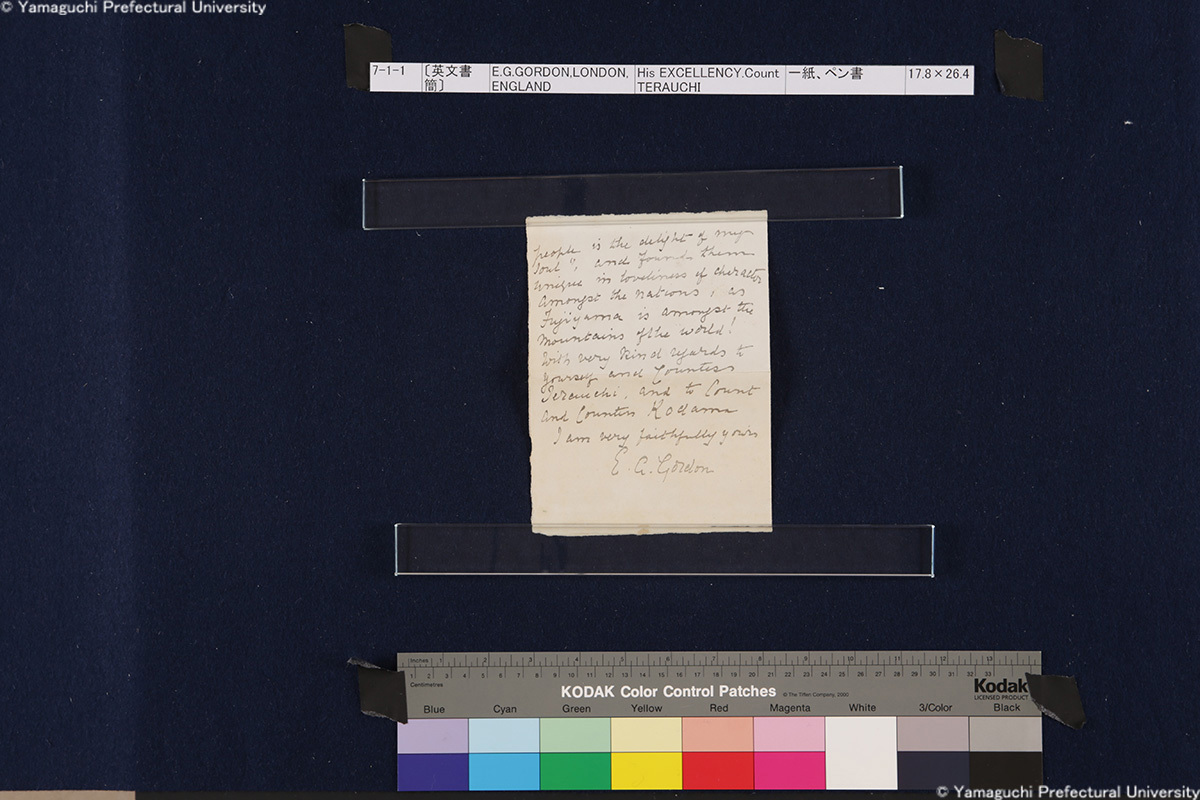 © Yamaguchi Prefectural University
7-1-1 〔英文書簡〕 E.G.GORDON,LONDON, ENGLAND His EXCELLENCY.Count TERAUCHI 一紙、ペン書 17.8×26.4
people is the delight of my
soul", and found them
unique in loveliness of character
amongst the nations, as
Fujiyama is amongst the
Mountains of the world!
With very kind regards to
yourself and Countess
Terauchi, and to Count
and Countess Kodama
I am very faithfully yours
E. A. Gordon
Inches 1 2 3 4 5 6 7 8 9 10 11 12 13
Centimetres 1 2 3 4 5 6 7 8 9 10 11 12 13 14 15 16 17 18 19 20 21 22 23 24 25 26 27 28 29 30 31 32 33
KODAK Color Control Patches © The Tiffen Company, 2000 Kodak
LICENSED PRODUCT
Blue Cyan Green Yellow Red Magenta White 3/Color Black
© Yamaguchi Prefectural University